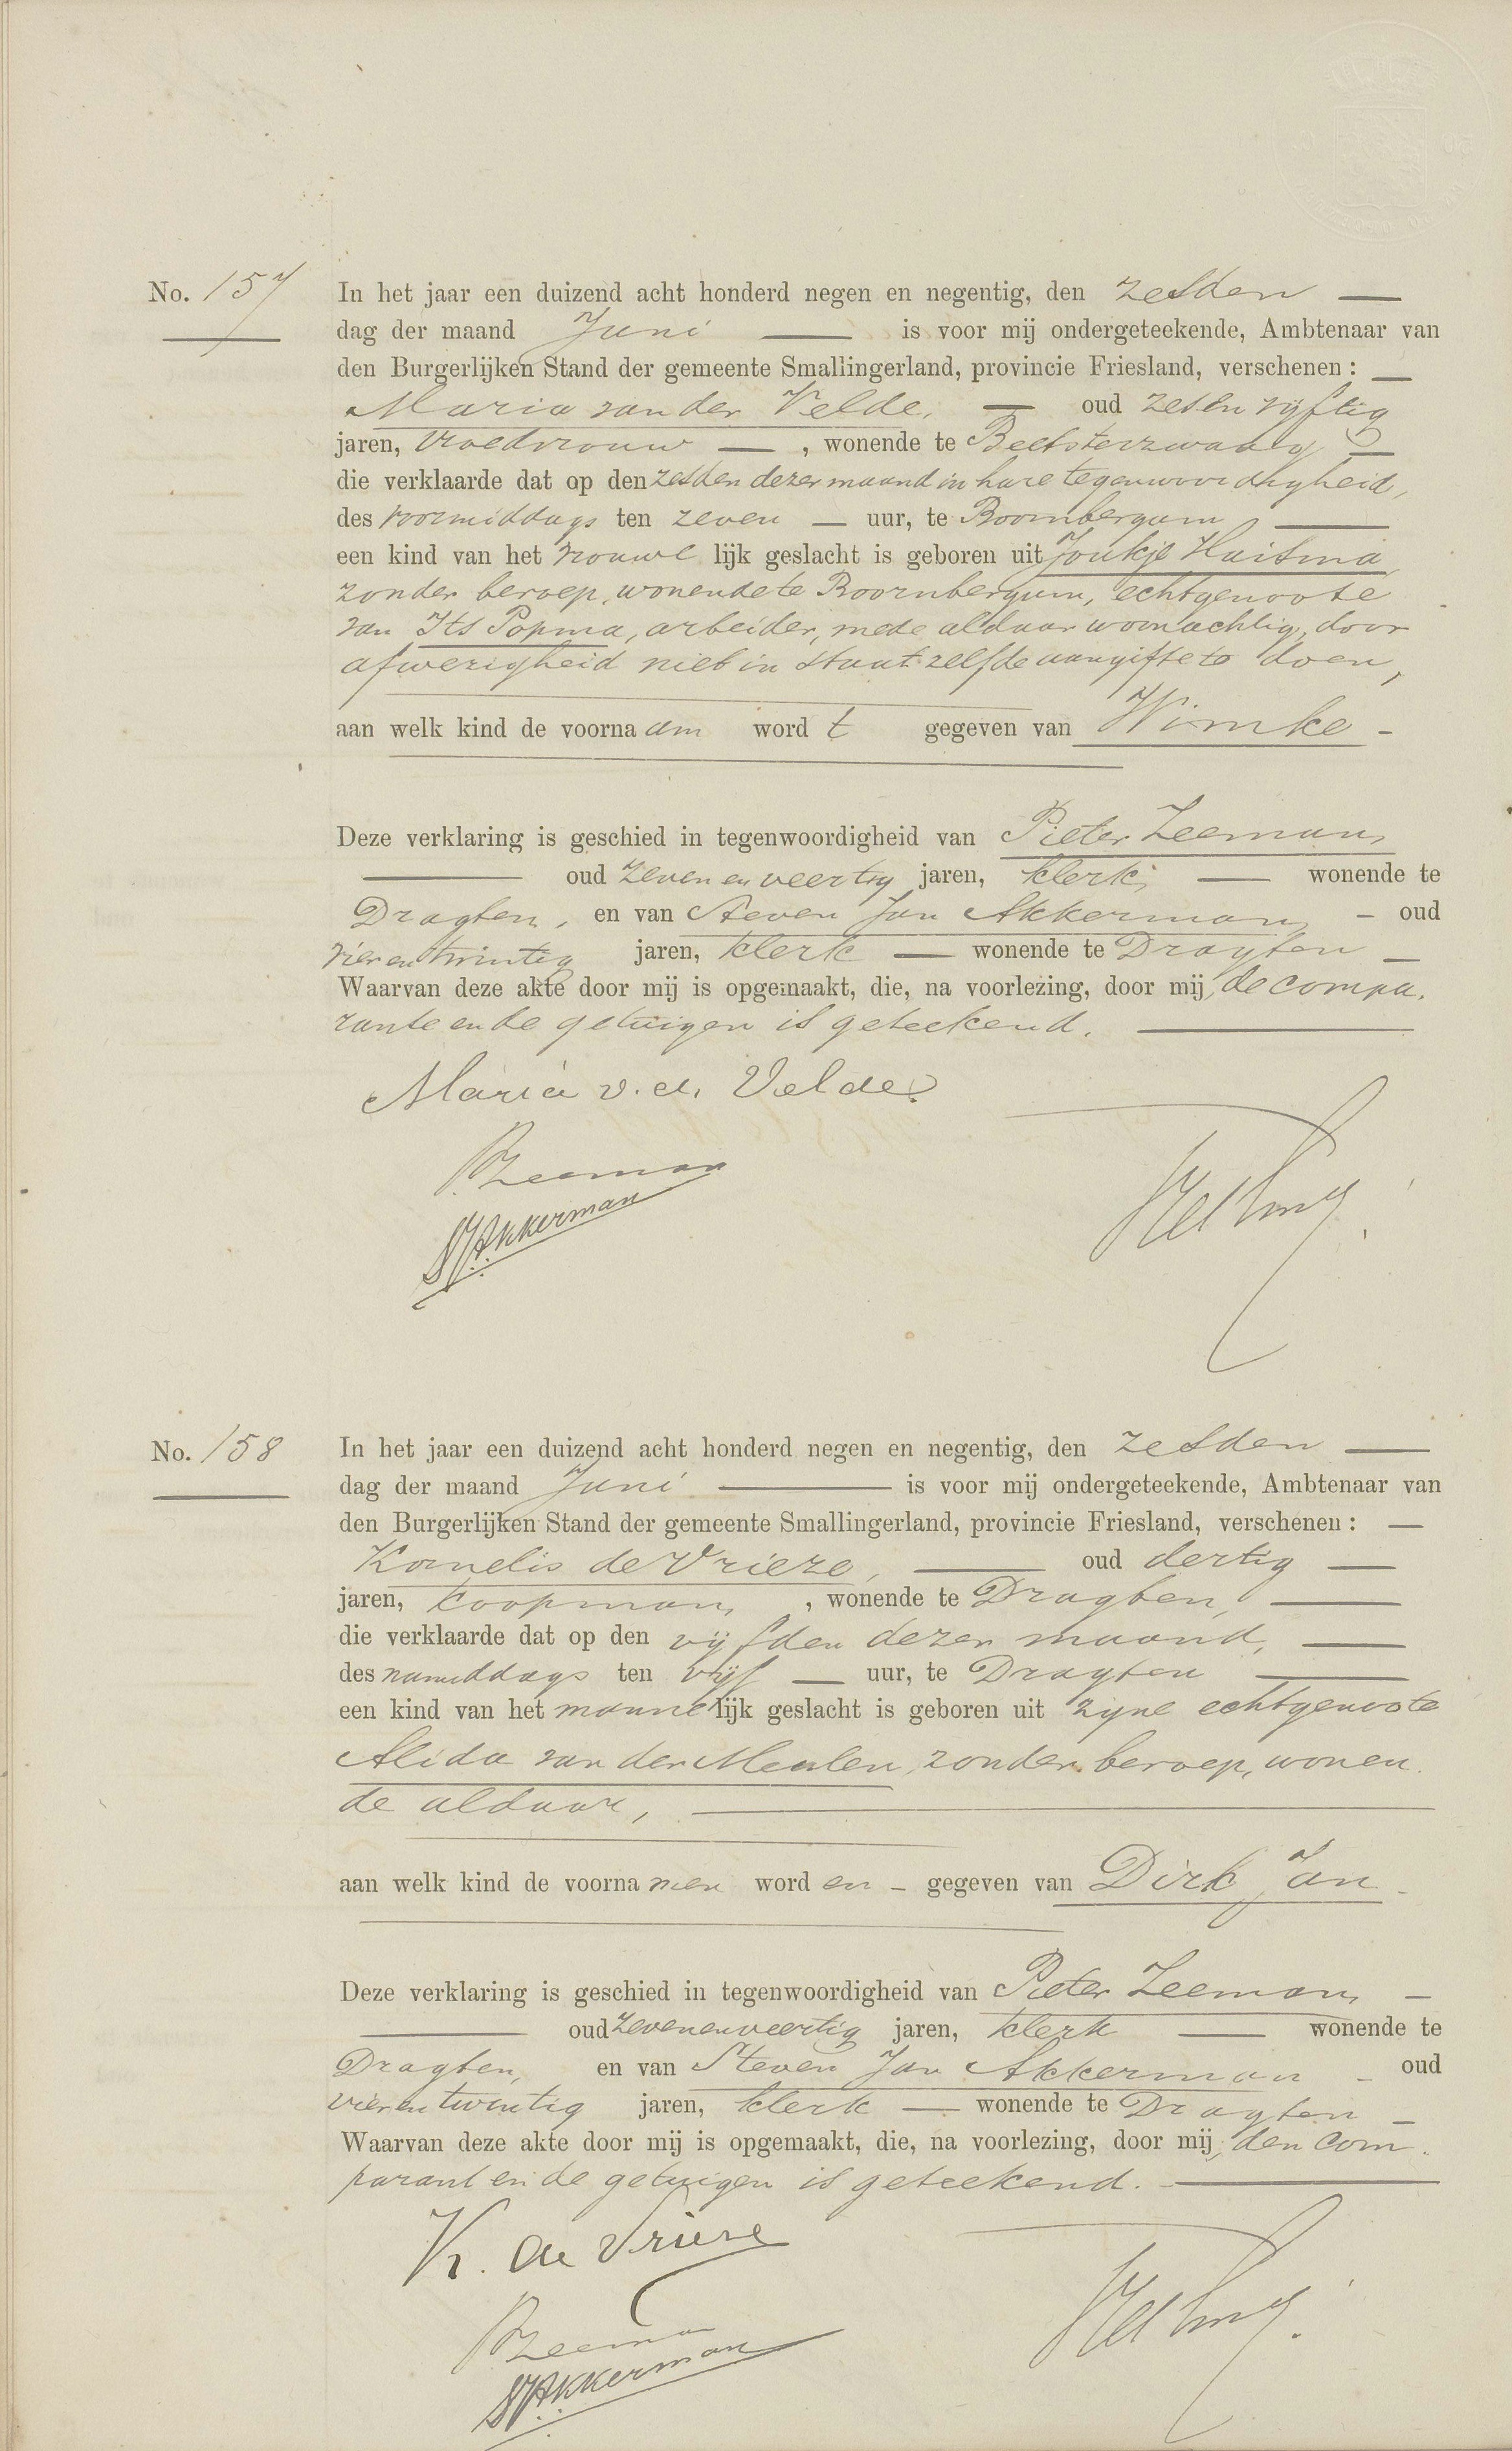 No. 157
In het jaar een duizend acht honderd negen en negentig, den zesden
dag der maand Juni is voor mij ondergeteekende, Ambtenaar van
den Burgerlijken Stand der gemeente Smallingerland, provincie Friesland, verschenen:
Maria van der Velde, oud zesenvyftig
jaren, vroedvrouw, wonende te Beetsterzwaag
die verklaarde dat op den zesden dezer maand in hare tegenwoordigheid,
des voormiddags ten zeven uur, te Boornbergum
een kind van het vrouwelijk geslacht is geboren uit Joukje Haitsma
zonder beroep, wonende te Boornbergum, echtgenoote
van Its Popma, arbeider, mede aldaar woonachtig, door
afwezigheid niet in staat zelf de aangifte te doen,
aan welk kind de voornaam wordt gegeven van Wimke
Deze verklaring is geschied in tegenwoordigheid van Pieter Zeeman,
oud zevenenveertig jaren, klerk, wonende te
Dragten, en van Steven Jan Akkerman, oud
vierentwintig jaren, klerk wonende te Dragten
Waarvan deze akte door mij is opgemaakt, die, na voorlezing, door mij, de compa-
rante en de getuigen is geteekend.
Maria v.d. Velde
PZeeman
SJAkkerman
No. 158
In het jaar een duizend acht honderd negen en negentig, den zesden
dag der maand Juni is voor mij ondergeteekende, Ambtenaar van
den Burgerlijken Stand der gemeente Smallingerland, provincie Friesland, verschenen:
Kornelis de Vrieze, oud dertig
jaren, koopman, wonende te Dragten,
die verklaarde dat op den vijfden dezer maand,
des namiddags ten vijf uur, te Dragten
een kind van het mannelijk geslacht is geboren uit zyne echtgenoote
Alida van der Meulen, zonder beroep, wonen-
de aldaar,
aan welk kind de voornamen worden gegeven van Dirk Jan
Deze verklaring is geschied in tegenwoordigheid van Pieter Zeeman,
oud zevenenveertig jaren, klerk wonende te
Dragten, en van Steven Jan Akkerman oud
vierentwintig jaren, klerk wonende te Dragten
Waarvan deze akte door mij is opgemaakt, die, na voorlezing, door mij, den com-
parant en de getuigen is geteekend.
K. de Vrieze
PZeeman
SJAkkerman